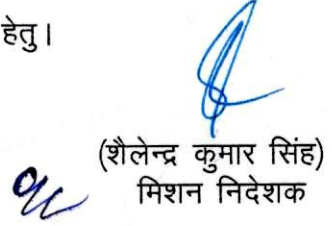 हेतु।
(शैलेन्द्र कुमार सिंह)
मिशन निदेशक